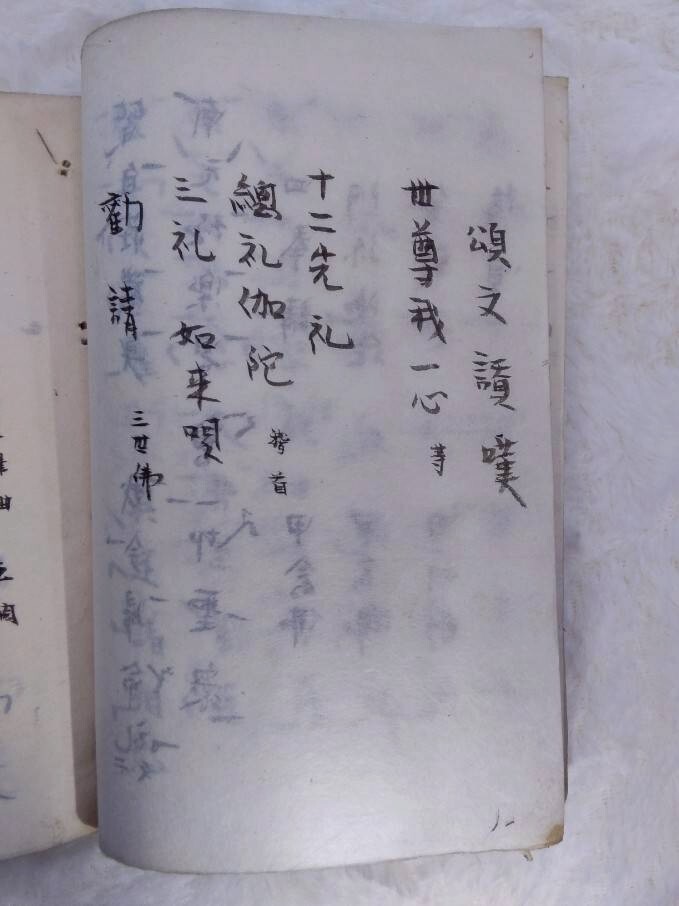 頌文讃嘆
世尊我一心 等
十二光礼
總礼伽陀 稽首
三礼 如来唄
勸請 三世佛